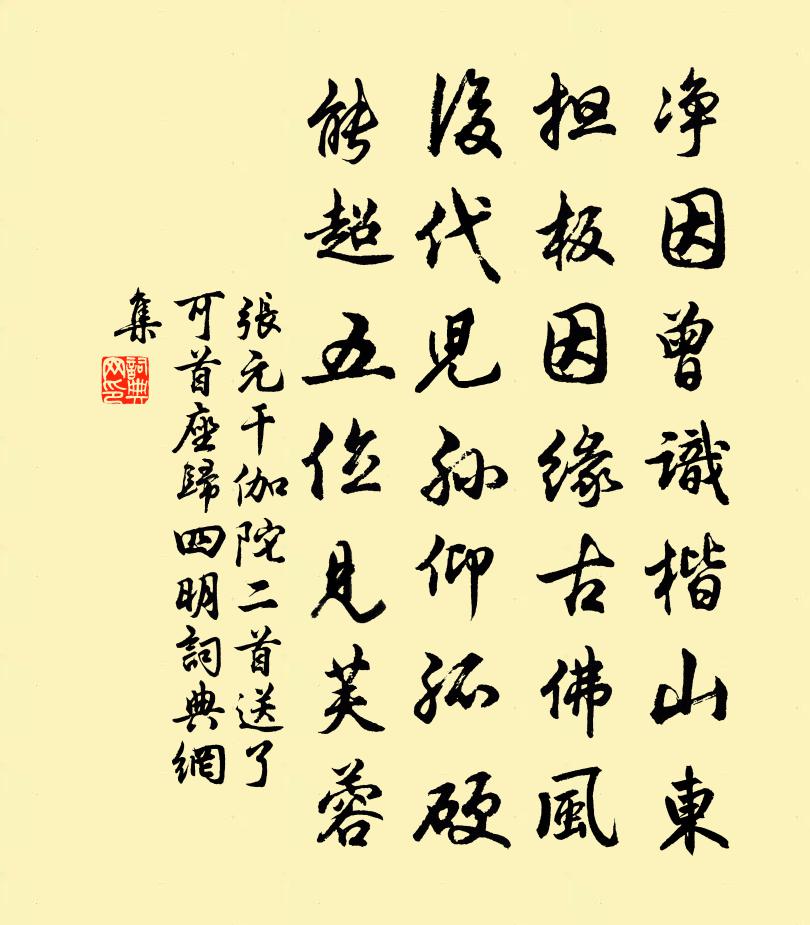 净因曾識楷山東
担板因緣古佛風
後代児孫仰孤硬
能超五位見芙蓉
張元干伽陀二首送了
可首座歸四明詞典網
集
詞典
网印